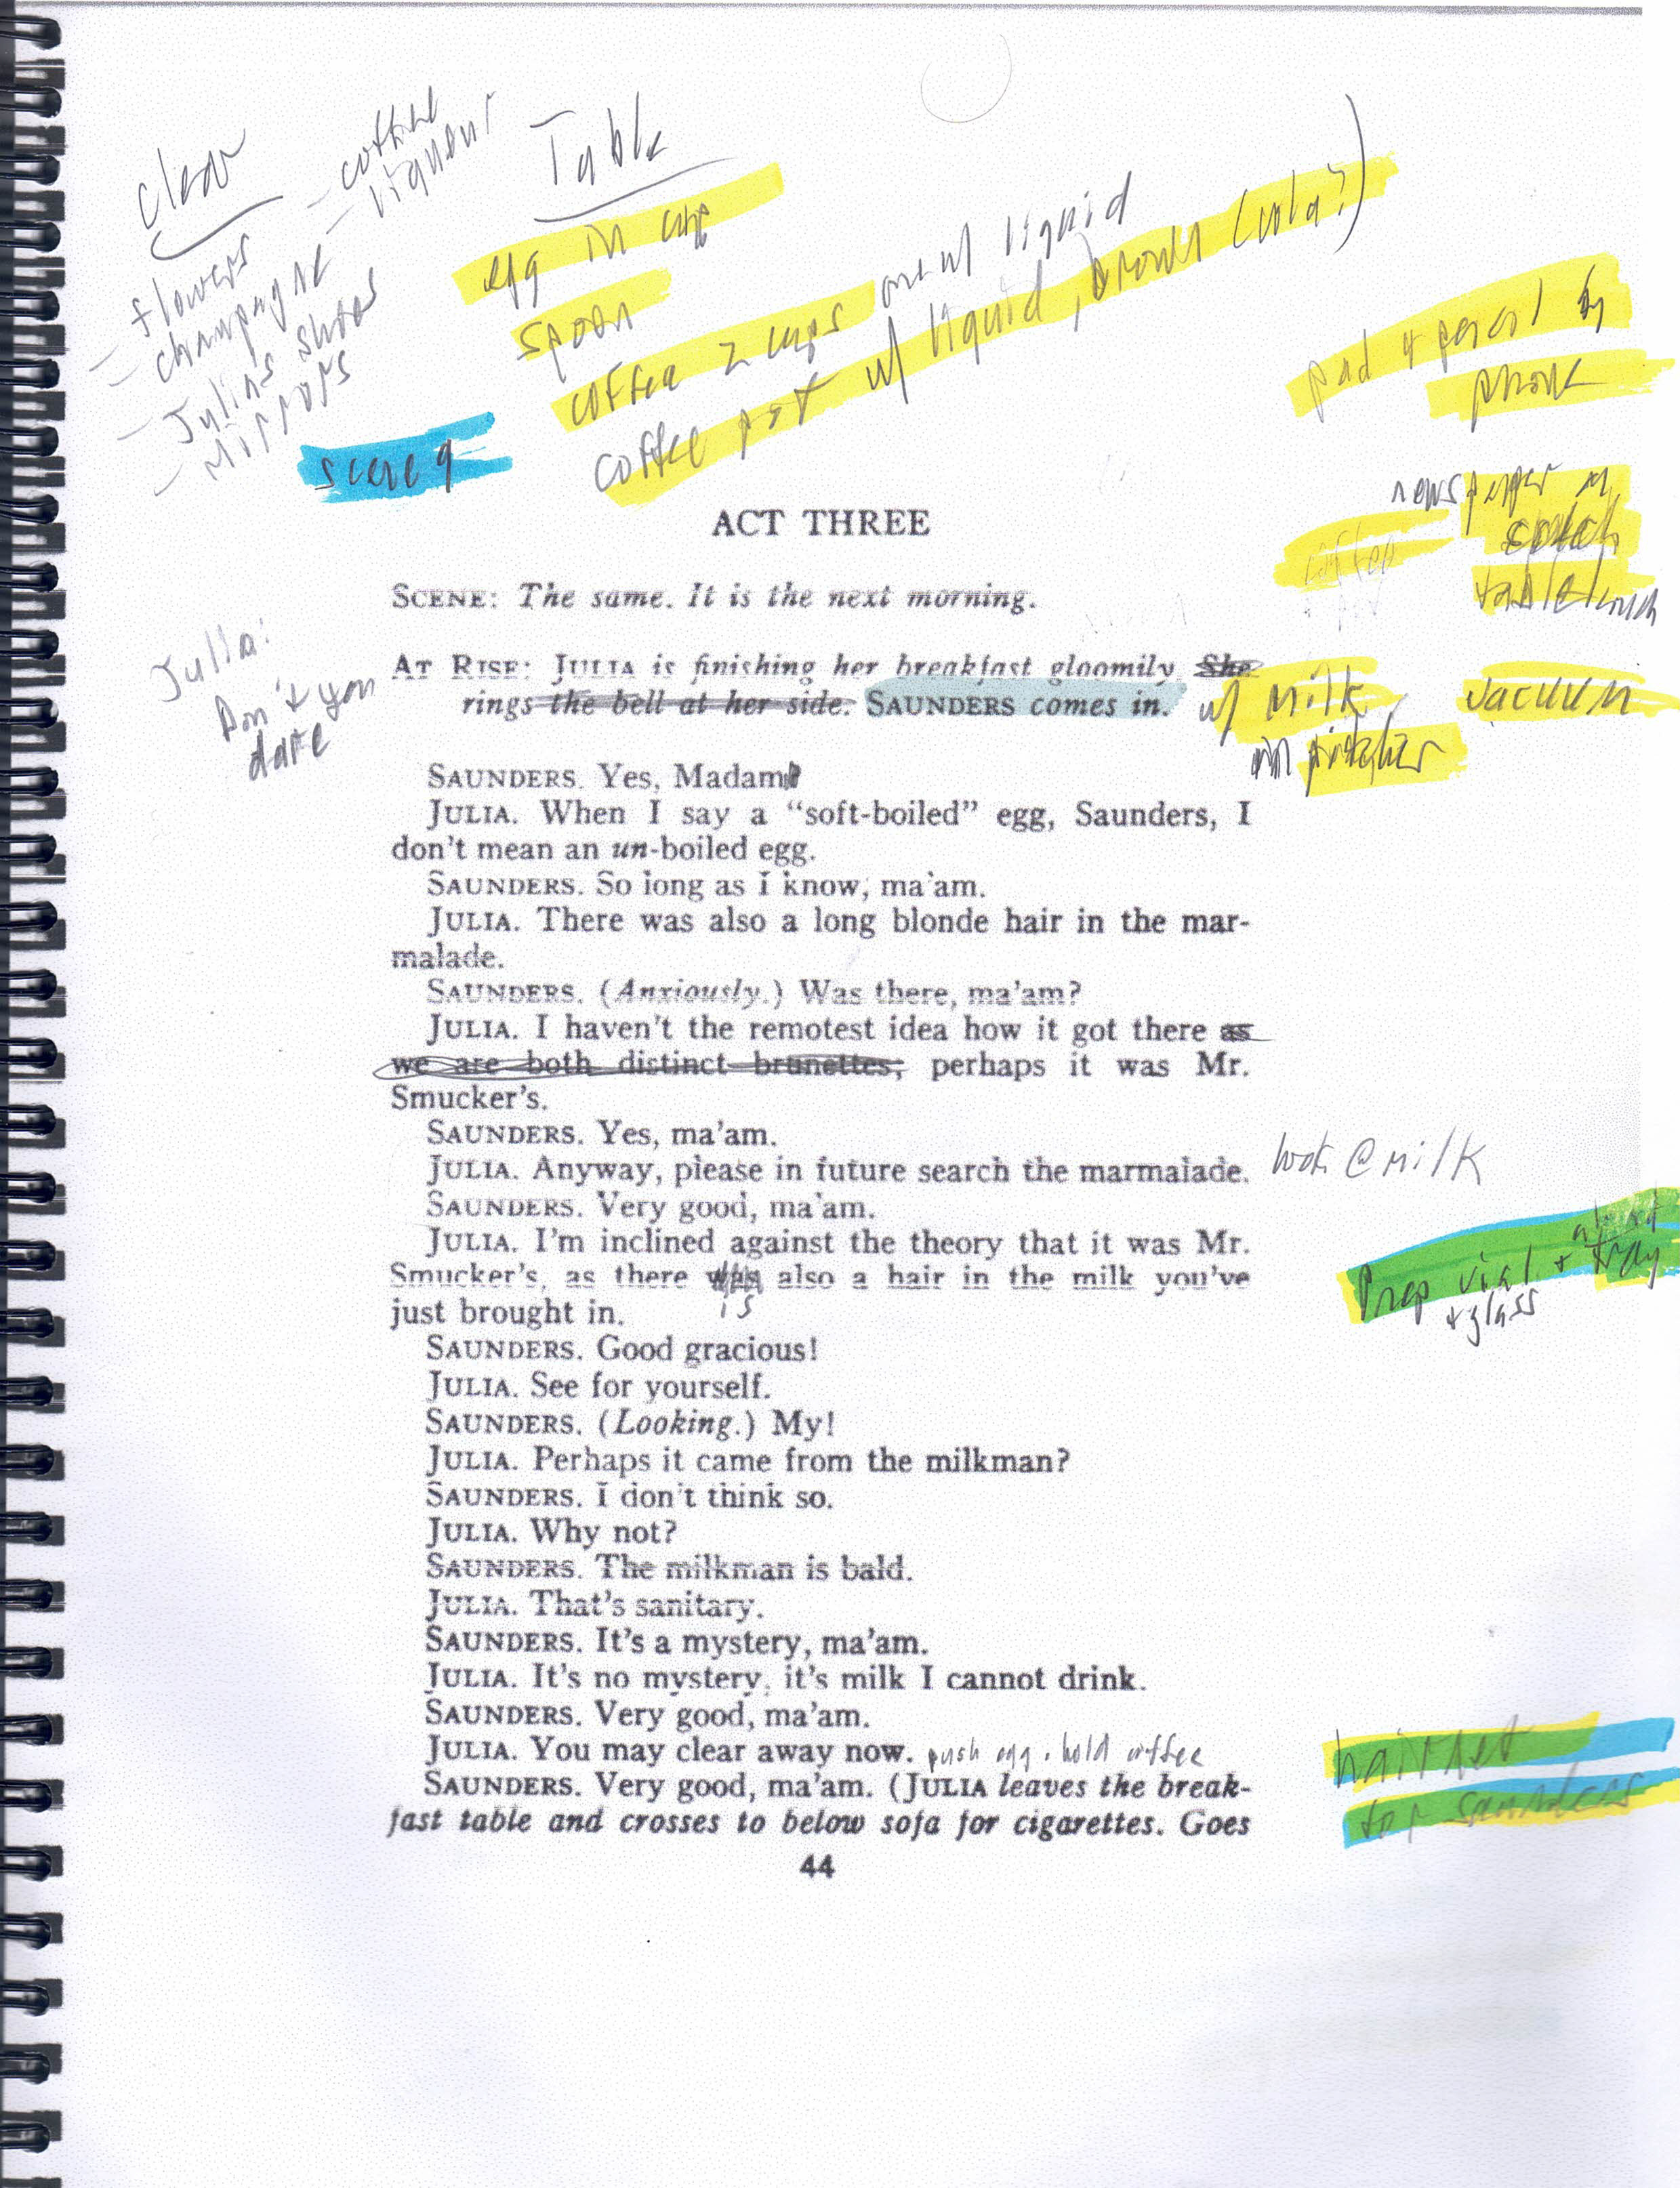 clear
- flowers
- champagne
- Julia's shoes
- mirrors
- coffee
- liqueur
Table
egg in cup
spoon
coffee 2 cups one w/ liquid
coffee pot w/ liquid, brown (cola?)
pad & pencil by
phone
scene 9
newspaper on
table couch
coffee
ACT THREE
SCENE: The same. It is the next morning.
Julia:
Don't you
dare
AT RISE: JULIA is finishing her breakfast gloomily. She
rings the bell at her side. SAUNDERS comes in.
w/ milk
in pitcher
vacuum
SAUNDERS. Yes, Madam?
JULIA. When I say a "soft-boiled" egg, Saunders, I
don't mean an un-boiled egg.
SAUNDERS. So long as I know, ma'am.
JULIA. There was also a long blonde hair in the mar-
malade.
SAUNDERS. (Anxiously.) Was there, ma'am?
JULIA. I haven't the remotest idea how it got there as
we are both distinct brunettes; perhaps it was Mr.
Smucker's.
SAUNDERS. Yes, ma'am.
JULIA. Anyway, please in future search the marmalade.
look @ milk
SAUNDERS. Very good, ma'am.
JULIA. I'm inclined against the theory that it was Mr.
Smucker's, as there was also a hair in the milk you've
is
just brought in.
Prep vial + tray
+ glass
SAUNDERS. Good gracious!
JULIA. See for yourself.
SAUNDERS. (Looking.) My!
JULIA. Perhaps it came from the milkman?
SAUNDERS. I don't think so.
JULIA. Why not?
SAUNDERS. The milkman is bald.
JULIA. That's sanitary.
SAUNDERS. It's a mystery, ma'am.
JULIA. It's no mystery, it's milk I cannot drink.
SAUNDERS. Very good, ma'am.
JULIA. You may clear away now. push egg. hold coffee
SAUNDERS. Very good, ma'am. (JULIA leaves the break-
fast table and crosses to below sofa for cigarettes. Goes
hairnet
for saunders
44